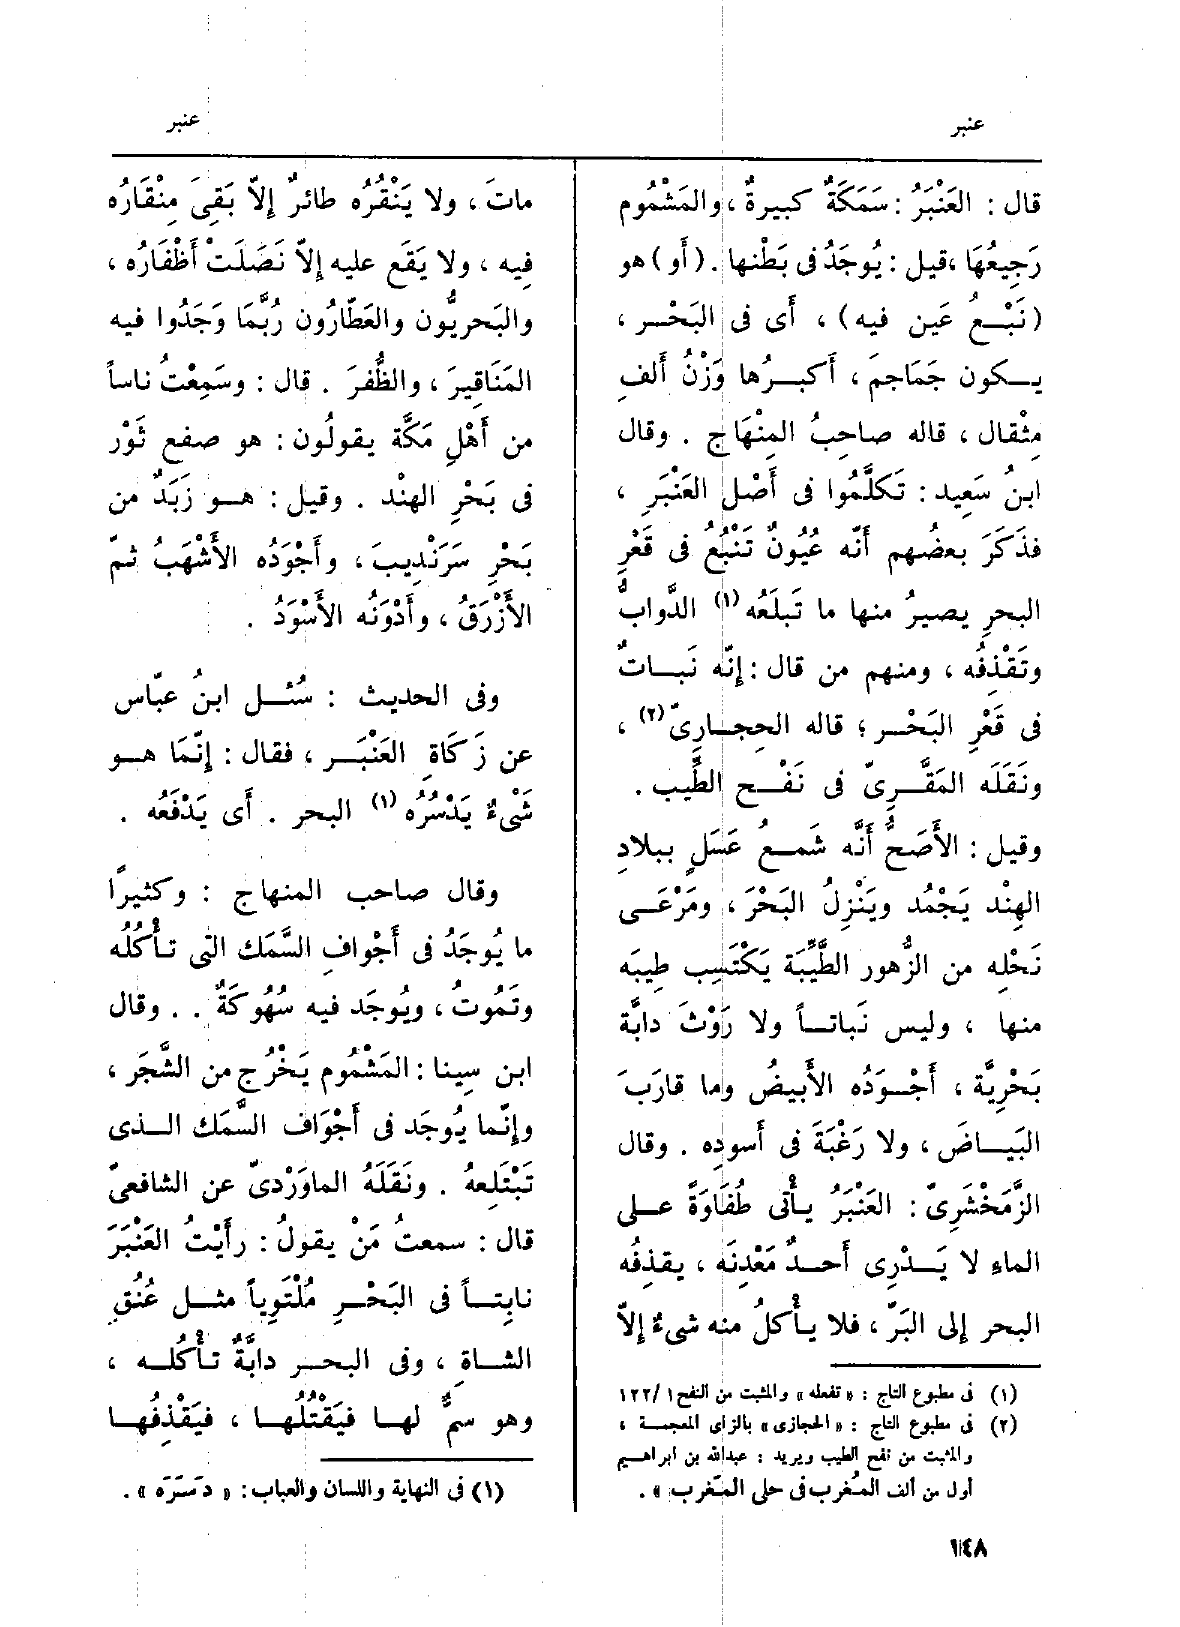 عنبر
قال : العَنْبَرُ : سَمَكَةٌ كبيرةٌ ، والمَشْمُوم
رَجِيعُهَا ، قيل : يُوجَدُ فى بَطْنها . ( أَو ) هو
( نَبْعُ عَين فيه ) ، أَى فى البَحْر ،
يكون جَمَاجمَ ، أَكبرُها وَزْنُ أَلفِ
مِثْقال ، قاله صاحبُ المِنْهاج . وقال
ابنُ سَعِيد : تَكلَّمُوا فى أَصْل العَنْبَرِ ،
فذَكَرَ بعضُهم أَنّه عُيُونٌ تَنْبُع فى قَعْرِ
البحرِ يصيرُ منها ما تَبلَعُه (١) الدَّوابُّ
وتَقْذِفُه ، ومنهم من قال : إِنّه نَباتٌ
فى قَعْرِ البَحْر ؛ قاله الحِجارِىّ (٢) ،
ونَقَلَه المَقَّرِىّ فى نَفْح الطِّيب .
وقيل : الأَصَحُّ أَنَّه شَمعُ عَسَلٍ ببلادِ
الهِنْد يَجْمُد ويَنْزِلُ البَحْرَ ، ومَرْعَى
نَحْلِه من الزُّهور الطَّيِّبَة يَكْتَسِب طِيبَه
منها ، وليس نَباتاً ولا رَوْثَ دابَّة
بَحْرِيَّة ، أَجْوَدُه الأَبيضُ وما قارَبَ
البَيَاضَ ، ولا رَغْبَةَ فى أَسودِه . وقال
الزَّمَخْشَرِىّ : العَنْبَرُ يأْتى طُفَاوَةً على
الماءِ لا يَدْرِى أَحدٌ مَعْدِنَه ، يقذِفُه
البحر إِلى البَرّ ، فلا يأْكلُ منه شىءٌ إِلاّ
(١) فى مطبوع التاج : « تفعله » والمثبت من النفح ١ /١٢٢
(٢) فى مطبوع التاج : « الحجازى » بالزاى المعجمة ،
والمثبت من نفح الطيب ويريد : عبدالله بن ابراهيم
أول من ألف المُغرب فى حلى المَغرب » .
١٤٨
عنبر
ماتَ ، ولا يَنْقُرُه طائرٌ إِلاّ بَقِىَ مِنْقَارُه
فِيه ، ولا يَقَع عليه إِلاّ نَصَلَتْ أَظْفَارُه ،
والبَحرِيُّون والعَطّارُون رُبَّمَا وَجَدُوا فيه
المَنَاقِيرَ ، والظُّفرَ . قال : وسَمِعْتُ ناساً
من أَهْلِ مَكَّة يقولُون : هو صفع ثَوْر
فى بَحْرِ الهنْد . وقيل : هو زَبَدٌ من
بَحْرِ سَرَنْدِيبَ ، وأَجْوَدُه الأَشْهَبُ ثمّ
الأَزْرَقُ ، وأَدْوَنُه الأَسْوَدُ .
وفى الحديث : سُئل ابنُ عبّاس
عن زَكَاةِ العَنْبَر ، فقال : إِنّمَا هو
شَىْءٌ يَدْسُرُه (١) البحر . أَى يَدْفَعُه .
وقال صاحب المنهاج : وكثيرًا
ما يُوجَدُ فى أَجْوافِ السَّمَك التى تأْكُلُه
وتَمُوتُ ، ويُوجَد فيه سُهُوكَةٌ . . وقال
ابن سِينا : المَشْمُوم يَخْرُج من الشَّجَر ،
وإِنّما يُوجَد فى أَجْوَاف السَّمَك الذى
تَبْتَلِعهُ . ونَقَلَهُ الماوَرْدىّ عن الشافعىّ
قال : سمعتُ مَنْ يقولُ : رأَيْتُ العَنْبَرَ
نابِتاً فى البَحْرِ مُلْتَوِياً مثل عُنُقِ
الشاةِ ، وفى البحر دابَّةٌ تأْكُله ،
وهو سمٌّ لها فيَقْتُلُها ، فيَقْذِفُها
(١) فى النهاية واللسان والعباب : « دَسَرَه » .